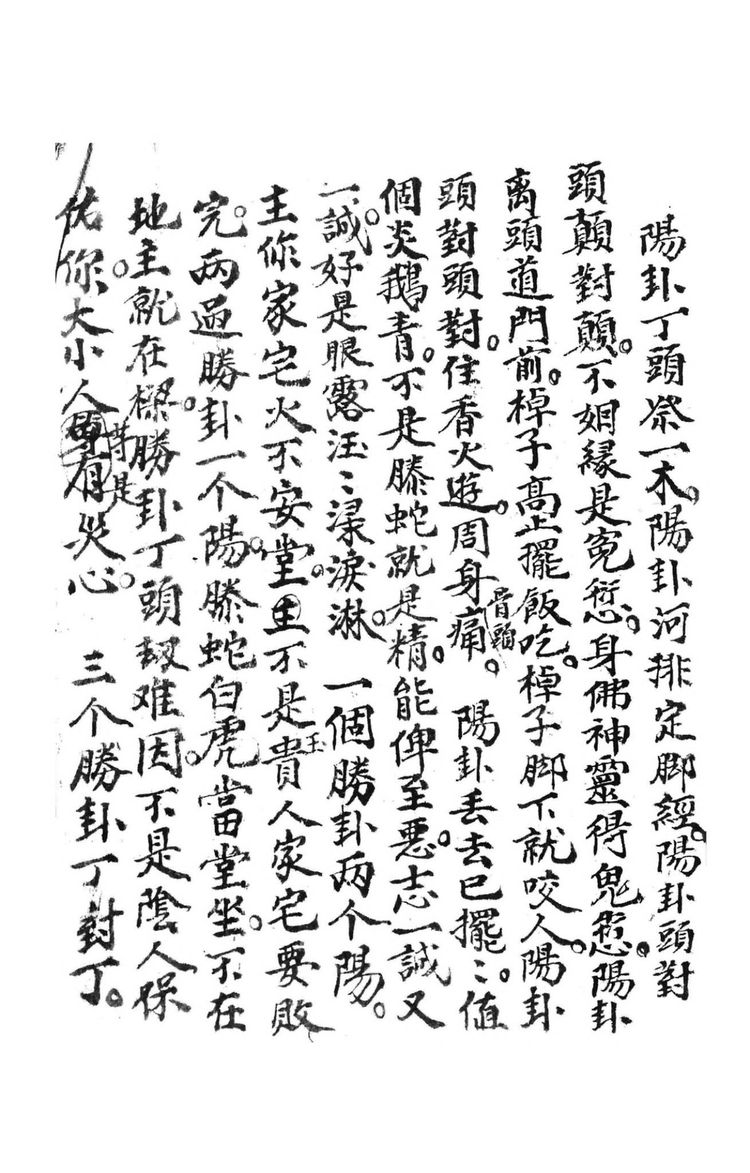 陽卦丁頭祭一木。陽卦河排定脚經。陽卦頭對
頭顛對顛。不姻緣是冤愆。身佛神靈得鬼愆。陽卦
离頭道門前。棹子高上擺飯吃。棹子脚下就咬人。陽卦
頭對頭對。住香火遊。周身骨頭痛。 陽卦丢去已擺〻。值
個炎鵝青。不是滕蛇就是精。能俾至惡。志一誠又
一誠。好是眼露汪〻淚淋。 一個勝卦兩个陽。
主你家宅火不安堂。主不是貴人家宅要敗
完。两過勝卦一个陽。滕蛇白虎當堂坐。不在
地主就在樑。勝卦丁頭刼难因。不是陰人保
佑你。大小人有災心。 三个勝卦丁對丁。